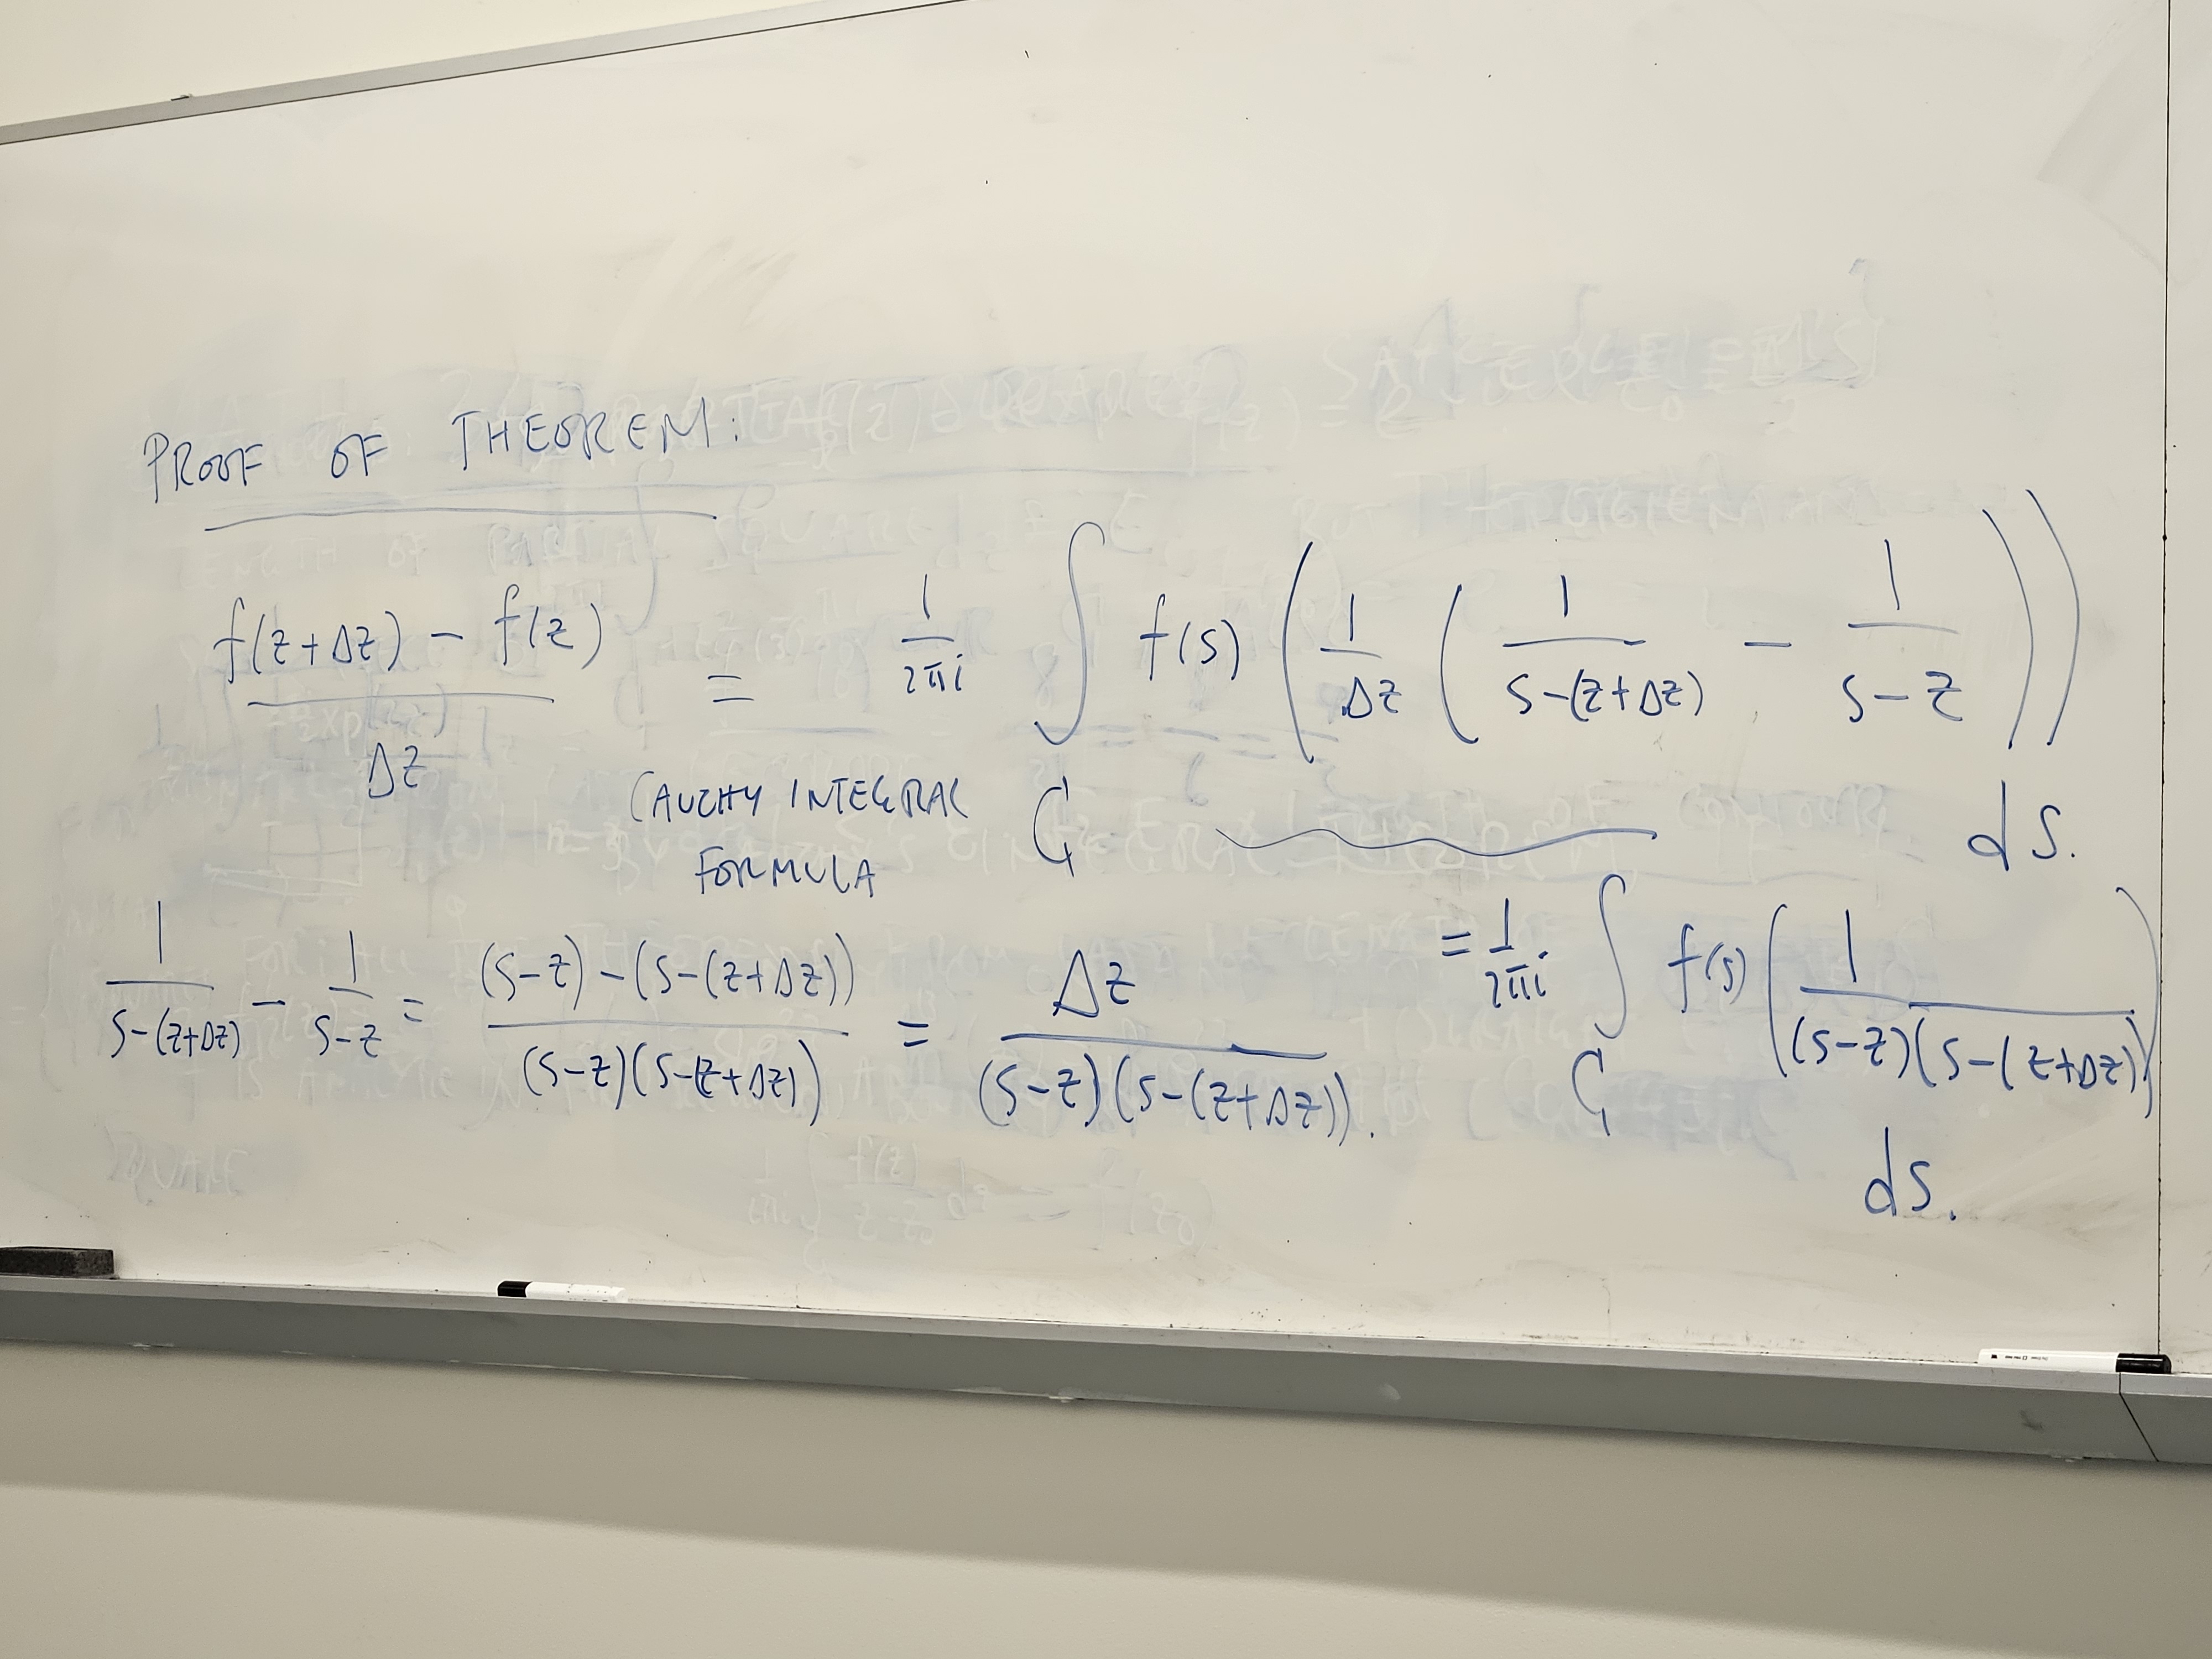 PROOF OF THEOREM:
f(z+Δz) − f(z) / Δz = 1/2πi ∫_C f(s) ( 1/Δz ( 1/s−(z+Δz) − 1/s−z ) ) ds.
CAUCHY INTEGRAL
FORMULA
1/s−(z+Δz) − 1/s−z = (s−z)−(s−(z+Δz)) / (s−z)(s−(z+Δz)) = Δz / (s−z)(s−(z+Δz)).
= 1/2πi ∫_C f(s) ( 1 / (s−z)(s−(z+Δz)) ) ds.